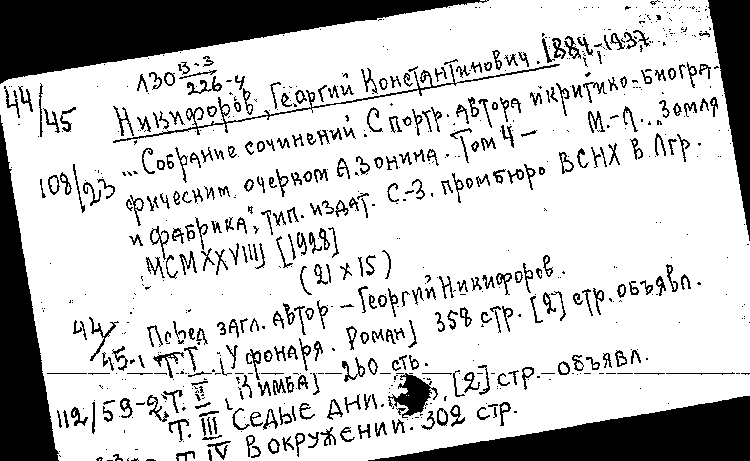 130 В-3/226-4
44/45 Никифоров, Георгий Константинович. 1884-1937
108/23 ... Собрание сочинений. С портр. автора и критико-биогра-
фическим очерком А. Зонина. Том 4 — М.-Л., Земля
и фабрика", тип. издат. С.-З. промбюро ВСНХ в Лгр.
MCMXXVIII] [1928]
(21 x 15)
Перед загл. автор — Георгий Никифоров.
44/45-1 Т. I. [У фонаря. Роман] 358 стр. [2] стр. объявл.
112/59-2 Т. II [Кимба] 260 сть.
Т. III Седые дни. [2] стр. объявл.
Т. IV В окружении. 302 стр.